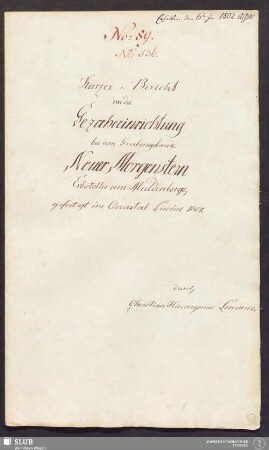 Erhalten den 6t Jan 1802
No: 89.
No. 556.
Kurzer Bericht
von der
Gezäheeinrichtung
bei dem Grubengebäude
Neuer Morgenstern
Erbstolln am Muldenberge,
gefertigt im Quartal Luciae 1802.
durch,
Christian Hieronymus
SLUB
Wir führen Wissen.